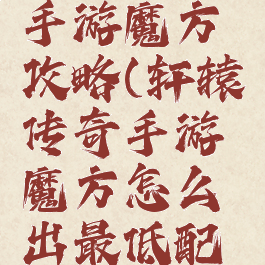 手游魔方
攻略(轩辕
传奇手游
魔方怎么
出最低配